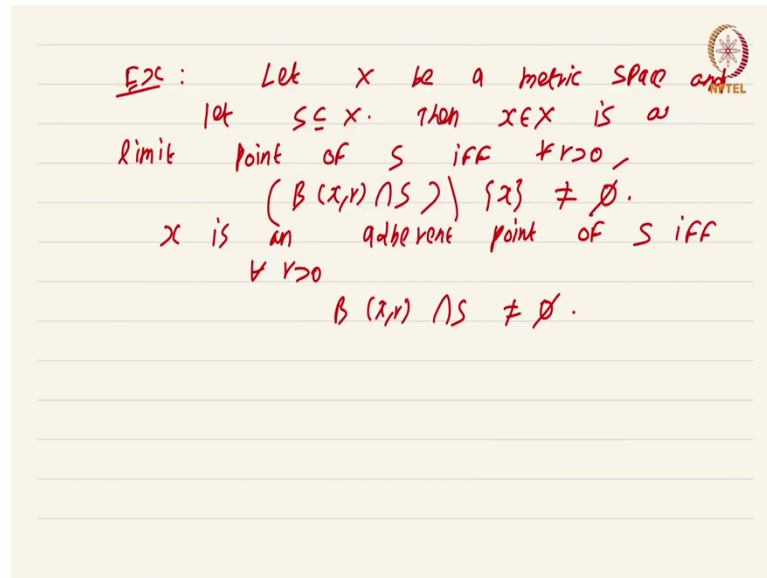 Ex: Let X be a metric space and
let S ⊆ X. Then x ∈ X is a
limit point of S iff ∀ r>0,
(B(x,r) ∩ S) \ {x} ≠ ∅.
x is an adherent point of S iff
∀ r>0
B(x,r) ∩ S ≠ ∅.
NPTEL